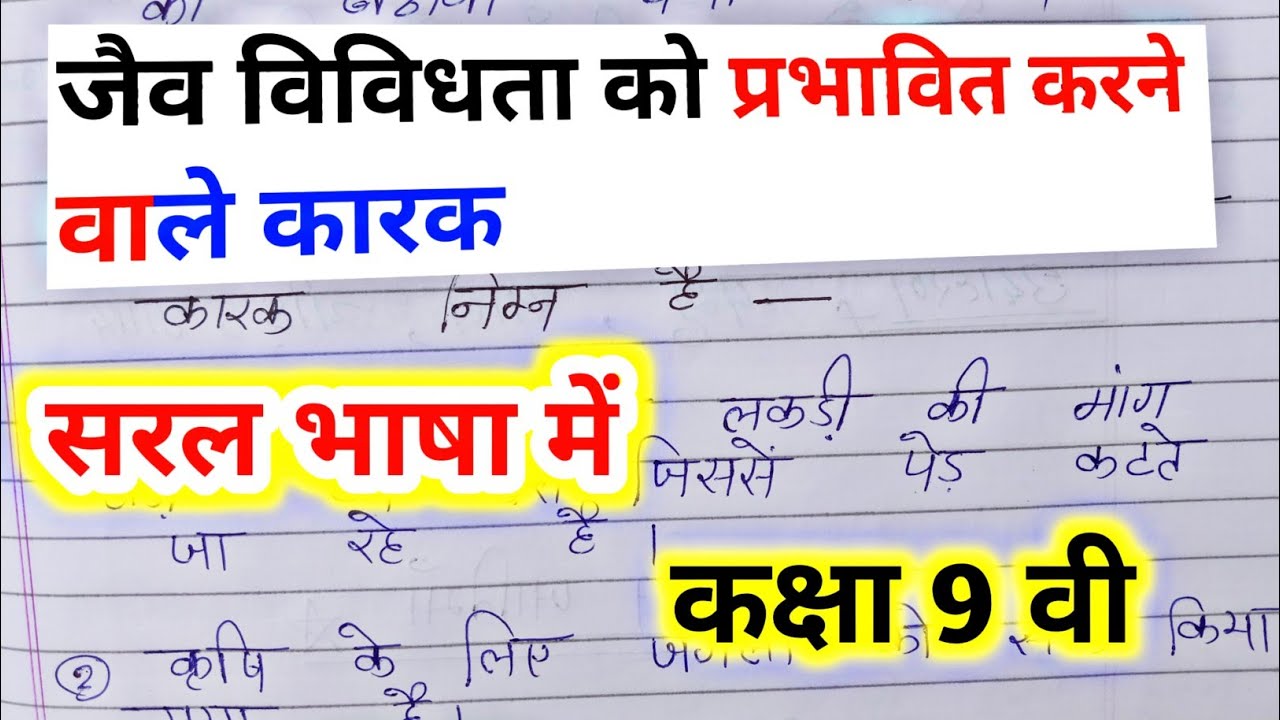 जैव विविधता को प्रभावित करने
वाले कारक
कारक निम्न है —
सरल भाषा में
लकड़ी की मांग
जिससें पेड़ कटते
जा रहे है ।
कक्षा 9 वी
② कृषि के लिए किया
है ।